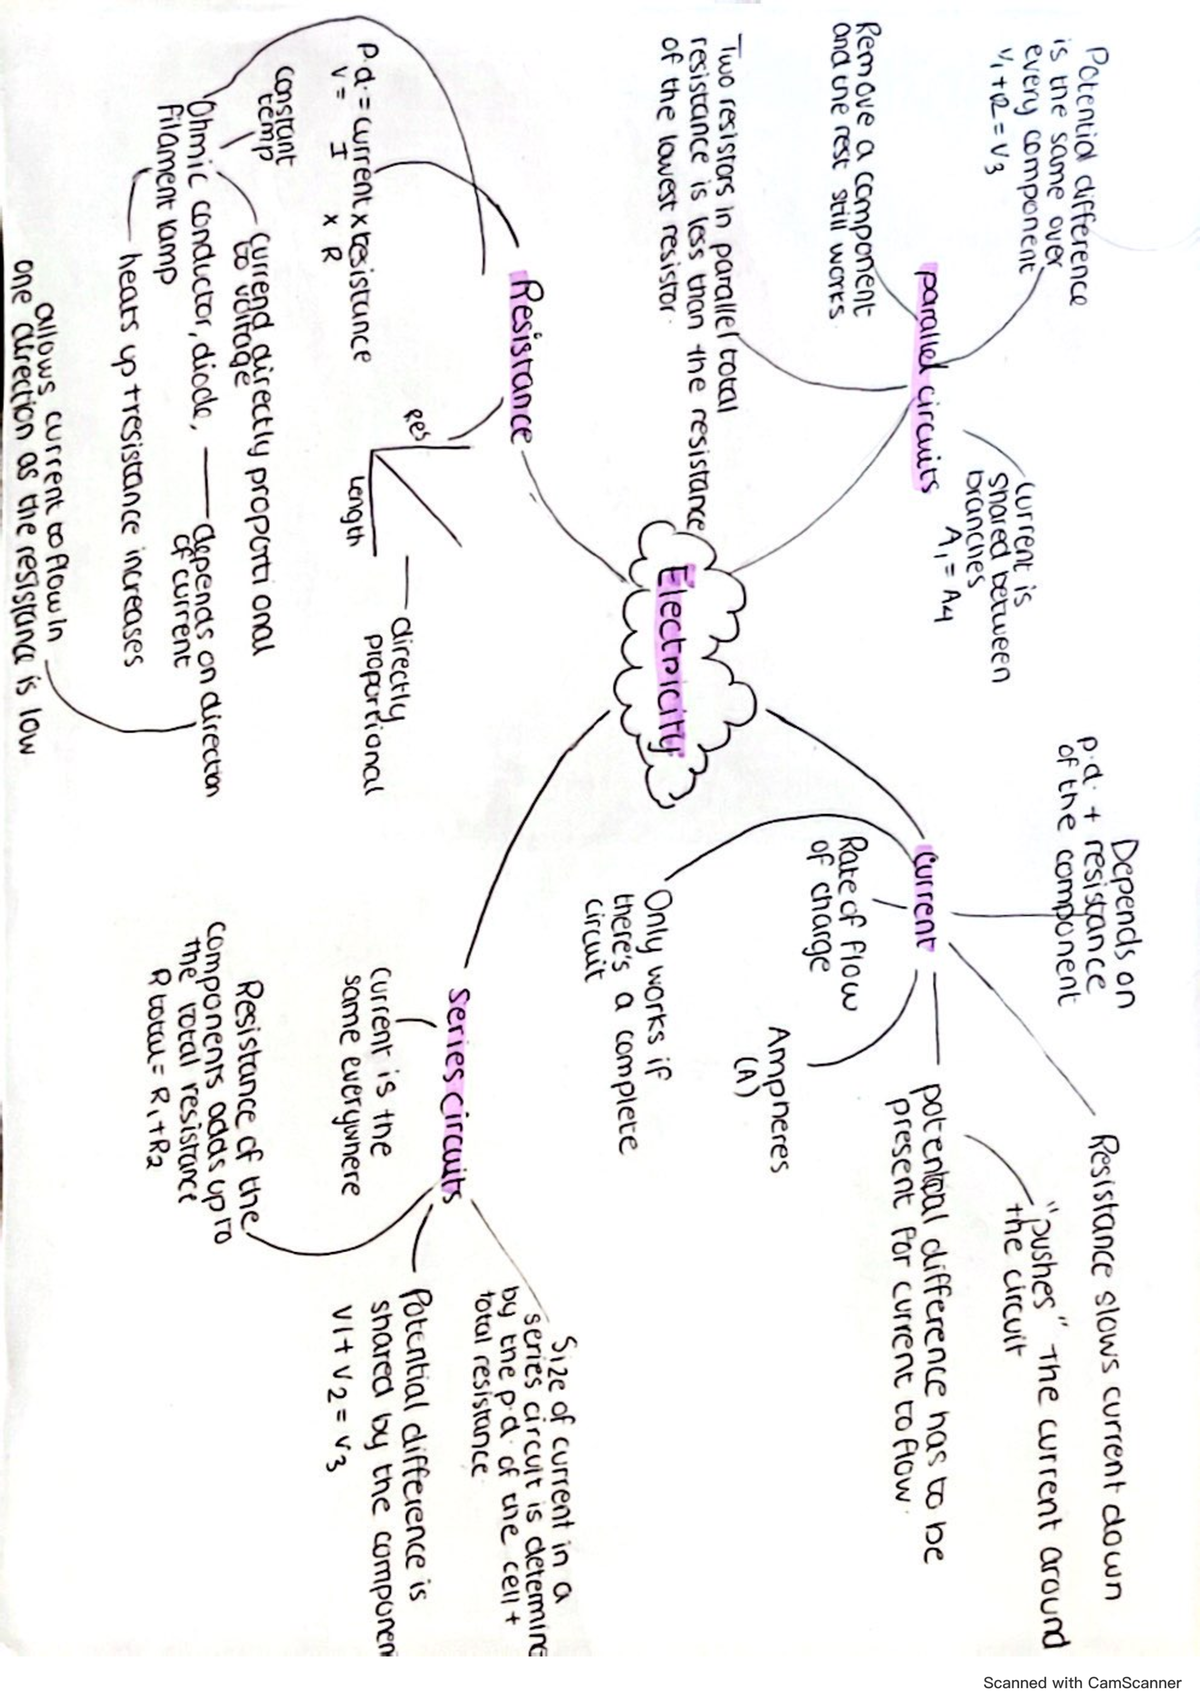 Electricity
parallel circuits
Potential difference
is the same over
every component
V1 + R2 = V3
Remove a component
and the rest still works.
Two resistors in parallel total
resistance is less than the resistance
of the lowest resistor.
Current is
shared between
branches
A1 = A4
Current
Depends on
p.d. + resistance
of the component
Rate of flow
of charge
Only works if
there's a complete
circuit
Ampheres
(A)
potential difference has to be
present for current to flow.
"pushes" the current around
the circuit
Resistance slows current down
Series circuits
Current is the
same everywhere
Resistance of the
components adds up to
the total resistance
R total = R1 + R2
Potential difference is
shared by the componen
V1 + V2 = V3
Size of current in a
series circuit is determine
by the p.d. of the cell +
total resistance.
Resistance
p.d. = current x resistance
V = I x R
Res
Length
directly
proportional
constant
temp
Ohmic conductor, diode,
Filament lamp
currend directly proporti onal
to voltage
depends on direction
of current
heats up + resistance increases
allows current to flow in
one direction as the resistance is low
Scanned with CamScanner